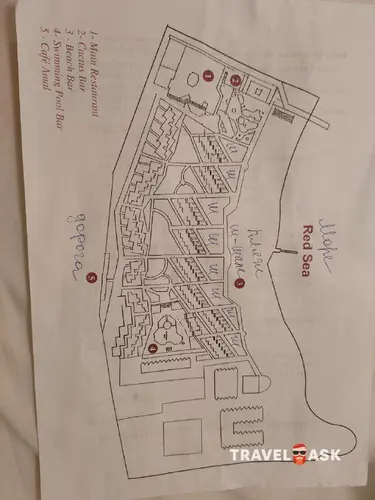 1- Main Restaurant
2- Cactus Bar
3 - Beach Bar
4- Swimming Pool Bar
5 - Café Amal
1
2
Море
Red Sea
пляж
3
дорога
5
4
TRAVEL ASK